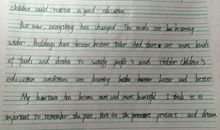 children could receive a good education.
But now, everything has changed. The roads are becoming
wider. Buildings have become taller. And there are more kinds
of foods and drinks to satisfy people's need. Children's
education conditions are becoming better and better.
My hometown has become more and more beautiful. I think it is
important to remember the past, live in the present and dream